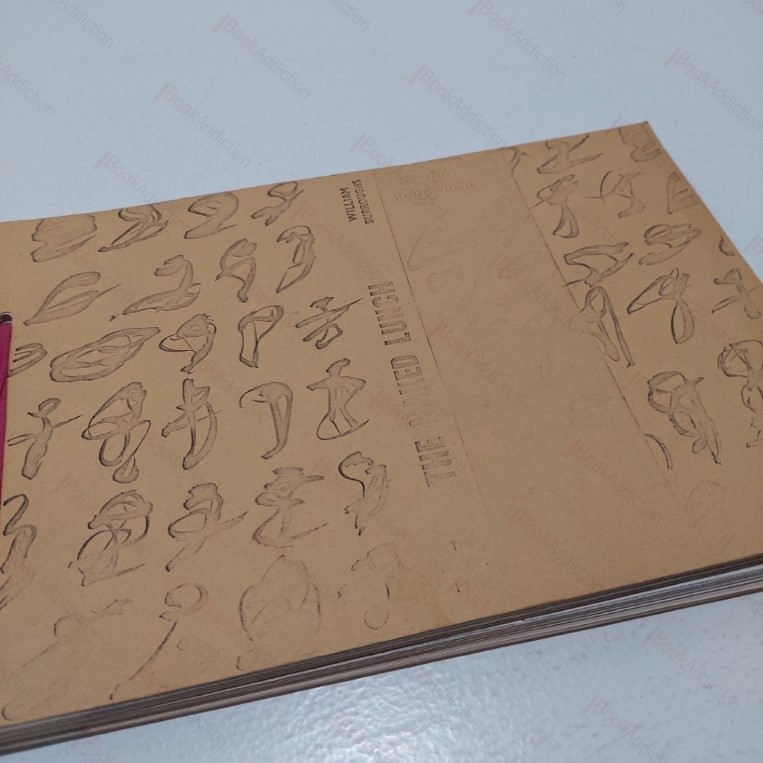 WILLIAM
BURROUGHS
THE NAKED LUNCH
BookAddiction